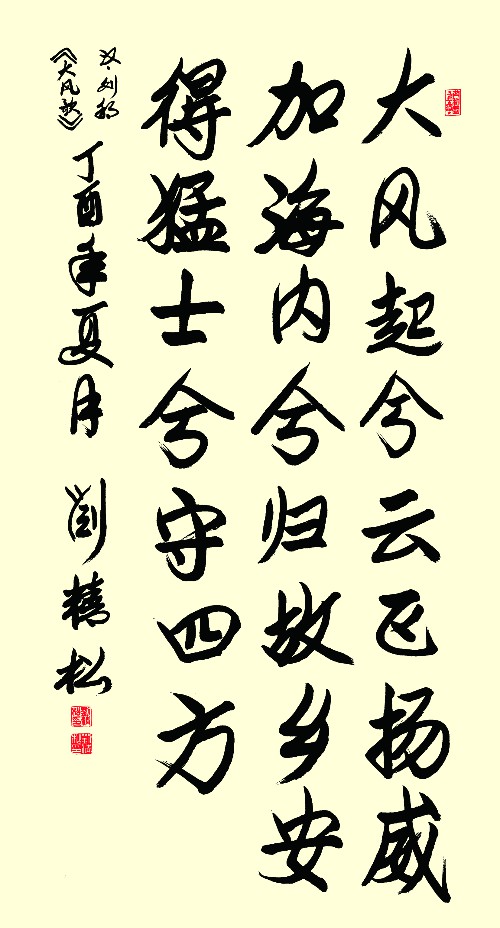 大风起兮云飞扬威
加海内兮归故乡安
得猛士兮守四方
汉·刘邦
《大风歌》
丁酉年夏月 刘 松